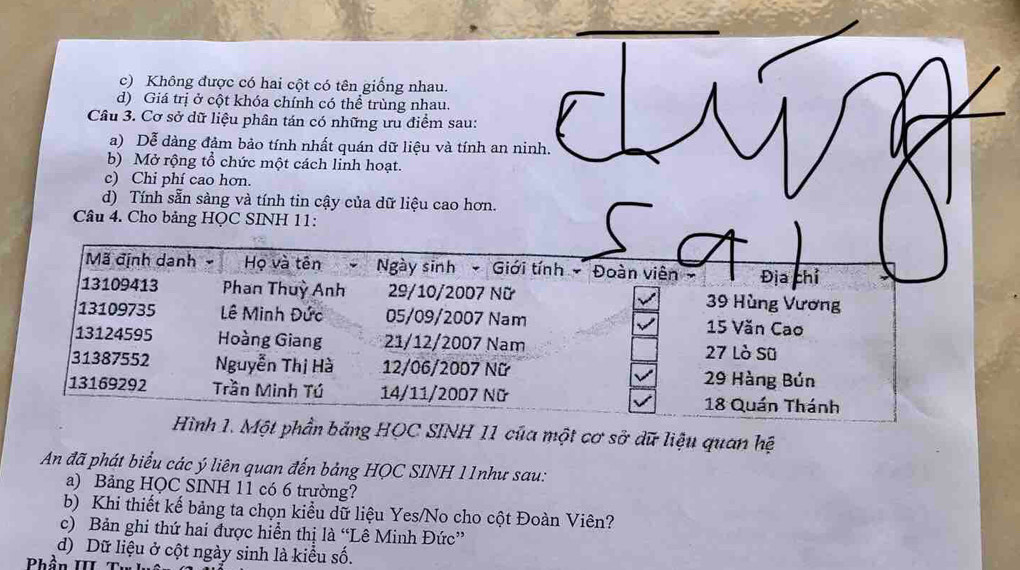 c) Không được có hai cột có tên giống nhau.
d) Giá trị ở cột khóa chính có thể trùng nhau.
Câu 3. Cơ sở dữ liệu phân tán có những ưu điểm sau:
a) Dễ dàng đảm bảo tính nhất quán dữ liệu và tính an ninh.
b) Mở rộng tổ chức một cách linh hoạt.
c) Chi phí cao hơn.
d) Tính sẵn sàng và tính tin cậy của dữ liệu cao hơn.
đúng
sai
Câu 4. Cho bảng HỌC SINH 11:
Mã định danh Họ và tên Ngày sinh Giới tính Đoàn viên Địa chỉ
13109413 Phan Thuỳ Anh 29/10/2007 Nữ 39 Hùng Vương
13109735 Lê Minh Đức 05/09/2007 Nam 15 Văn Cao
13124595 Hoàng Giang 21/12/2007 Nam 27 Lò Sũ
31387552 Nguyễn Thị Hà 12/06/2007 Nữ 29 Hàng Bún
13169292 Trần Minh Tú 14/11/2007 Nữ 18 Quán Thánh
Hình 1. Một phần bảng HỌC SINH 11 của một cơ sở dữ liệu quan hệ
An đã phát biểu các ý liên quan đến bảng HỌC SINH 11như sau:
a) Bảng HỌC SINH 11 có 6 trường?
b) Khi thiết kế bảng ta chọn kiểu dữ liệu Yes/No cho cột Đoàn Viên?
c) Bản ghi thứ hai được hiển thị là “Lê Minh Đức”
d) Dữ liệu ở cột ngày sinh là kiểu số.
Phần III.